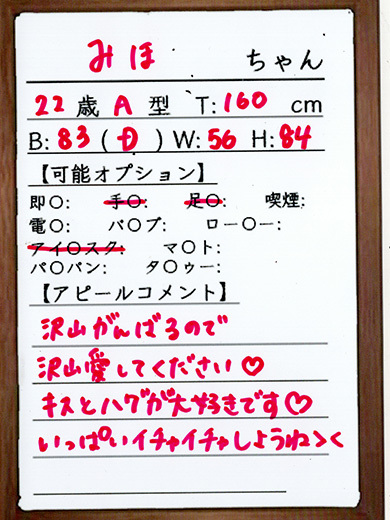 みほ ちゃん
22歳 A型 T:160 cm
B:83(D)W:56 H:84
【可能オプション】
即〇: 手〇: 足〇: 喫煙:
電〇: バ〇ブ: ロー〇ー:
アイ〇スク: マ〇ト:
パ〇パン: タ〇ゥー:
【アピールコメント】
沢山がんばるので
沢山愛してください♡
キスとハグが大好きです♡
いっぱいイチャイチャしようね〜